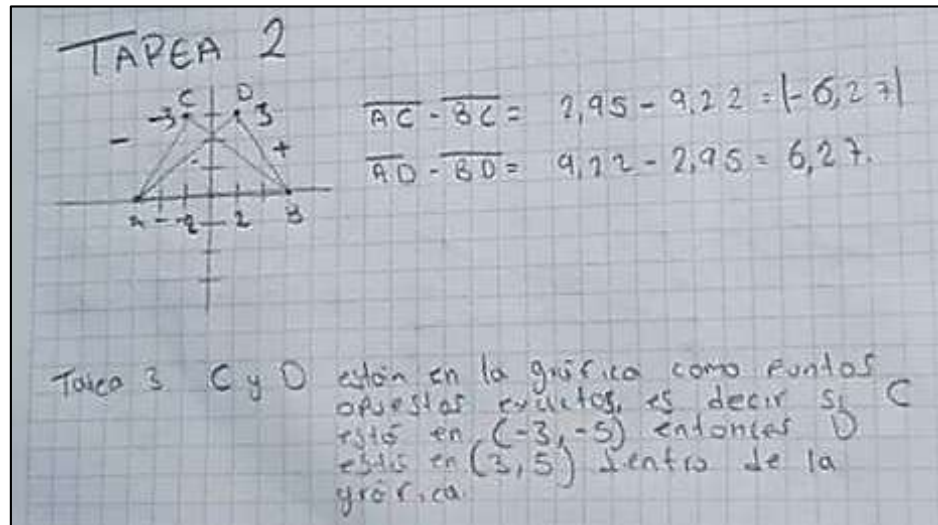 TAREA 2
C D
-3 3
- +
A -2 2 B
AC - BC = 2,95 - 9,22 = |-6,27|
AD - BD = 9,22 - 2,95 = 6,27.
Tarea 3 C y D están en la gráfica como puntos
opuestos exactos, es decir si C
está en (-3,-5) entonces D
está en (3,5) dentro de la
gráfica.